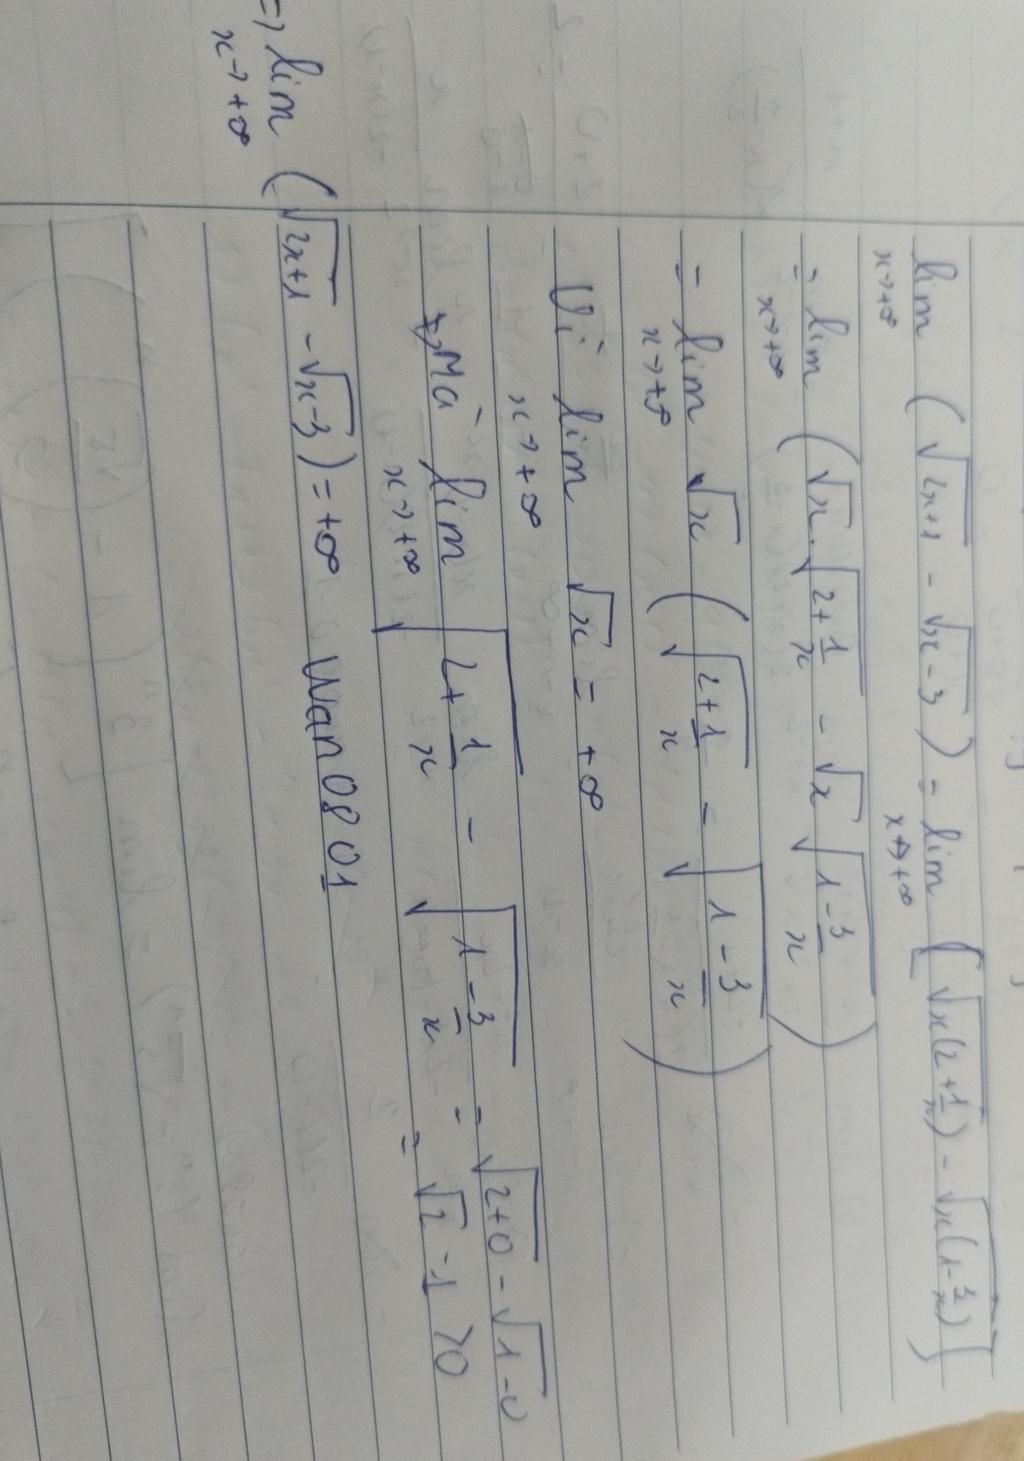 lim x→+∞ (√(2x+1) - √(x-3)) = lim x→+∞ [√(x(2+1/x)) - √(x(1-3/x))]
= lim x→+∞ (√x.√(2+1/x) - √x √(1-3/x))
= lim x→+∞ √x (√(2+1/x) - √(1-3/x))
Vì lim x→+∞ √x = +∞
Mà lim x→+∞ √(2+1/x) - √(1-3/x) = √(2+0) - √(1-0)
= √2 - 1 >0
=> lim x→+∞ (√(2x+1) - √(x-3)) = +∞ Wan0801